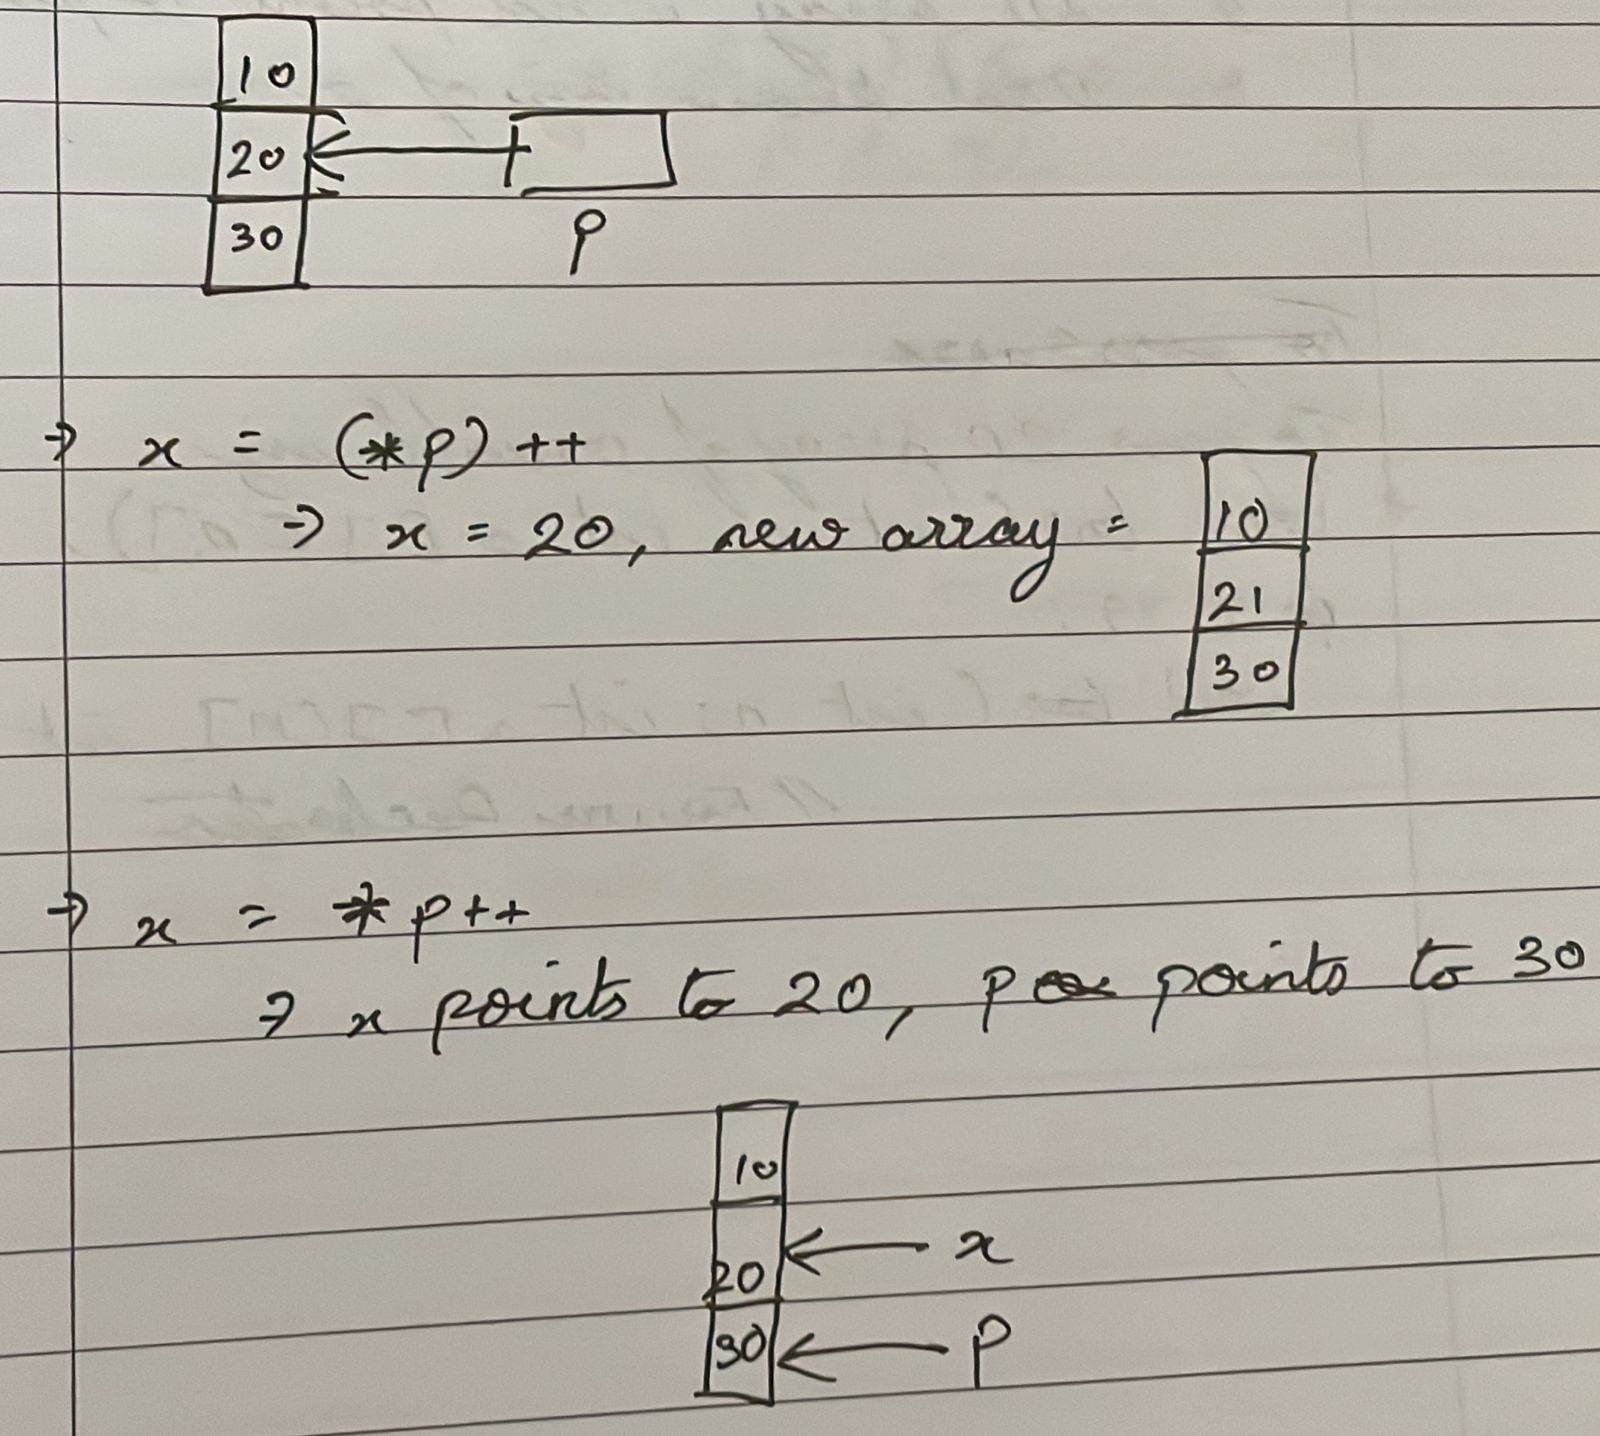 10
20
30
p
→ x = (*p)++
→ x = 20, new array =
10
21
30
→ x = *p++
→ x points to 20, p points to 30
10
20 ← x
30 ← p